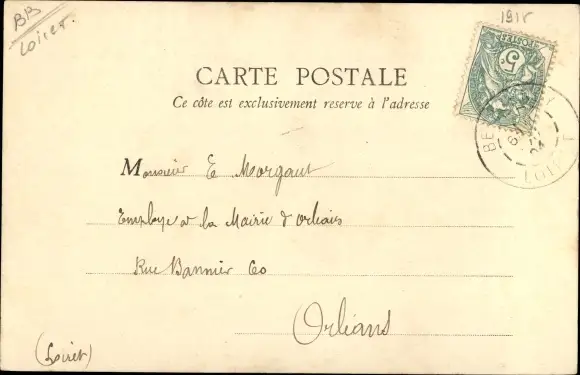 BB
Loiret.
1918
POSTES
5c
CARTE POSTALE
Ce côte est exclusivement reserve à l'adresse
BE
04
LOIRET
Monsieur E Morgaut
Employe a la Mairie d'Orleans
Rue Bannier 60
Orléans
(Loiret)